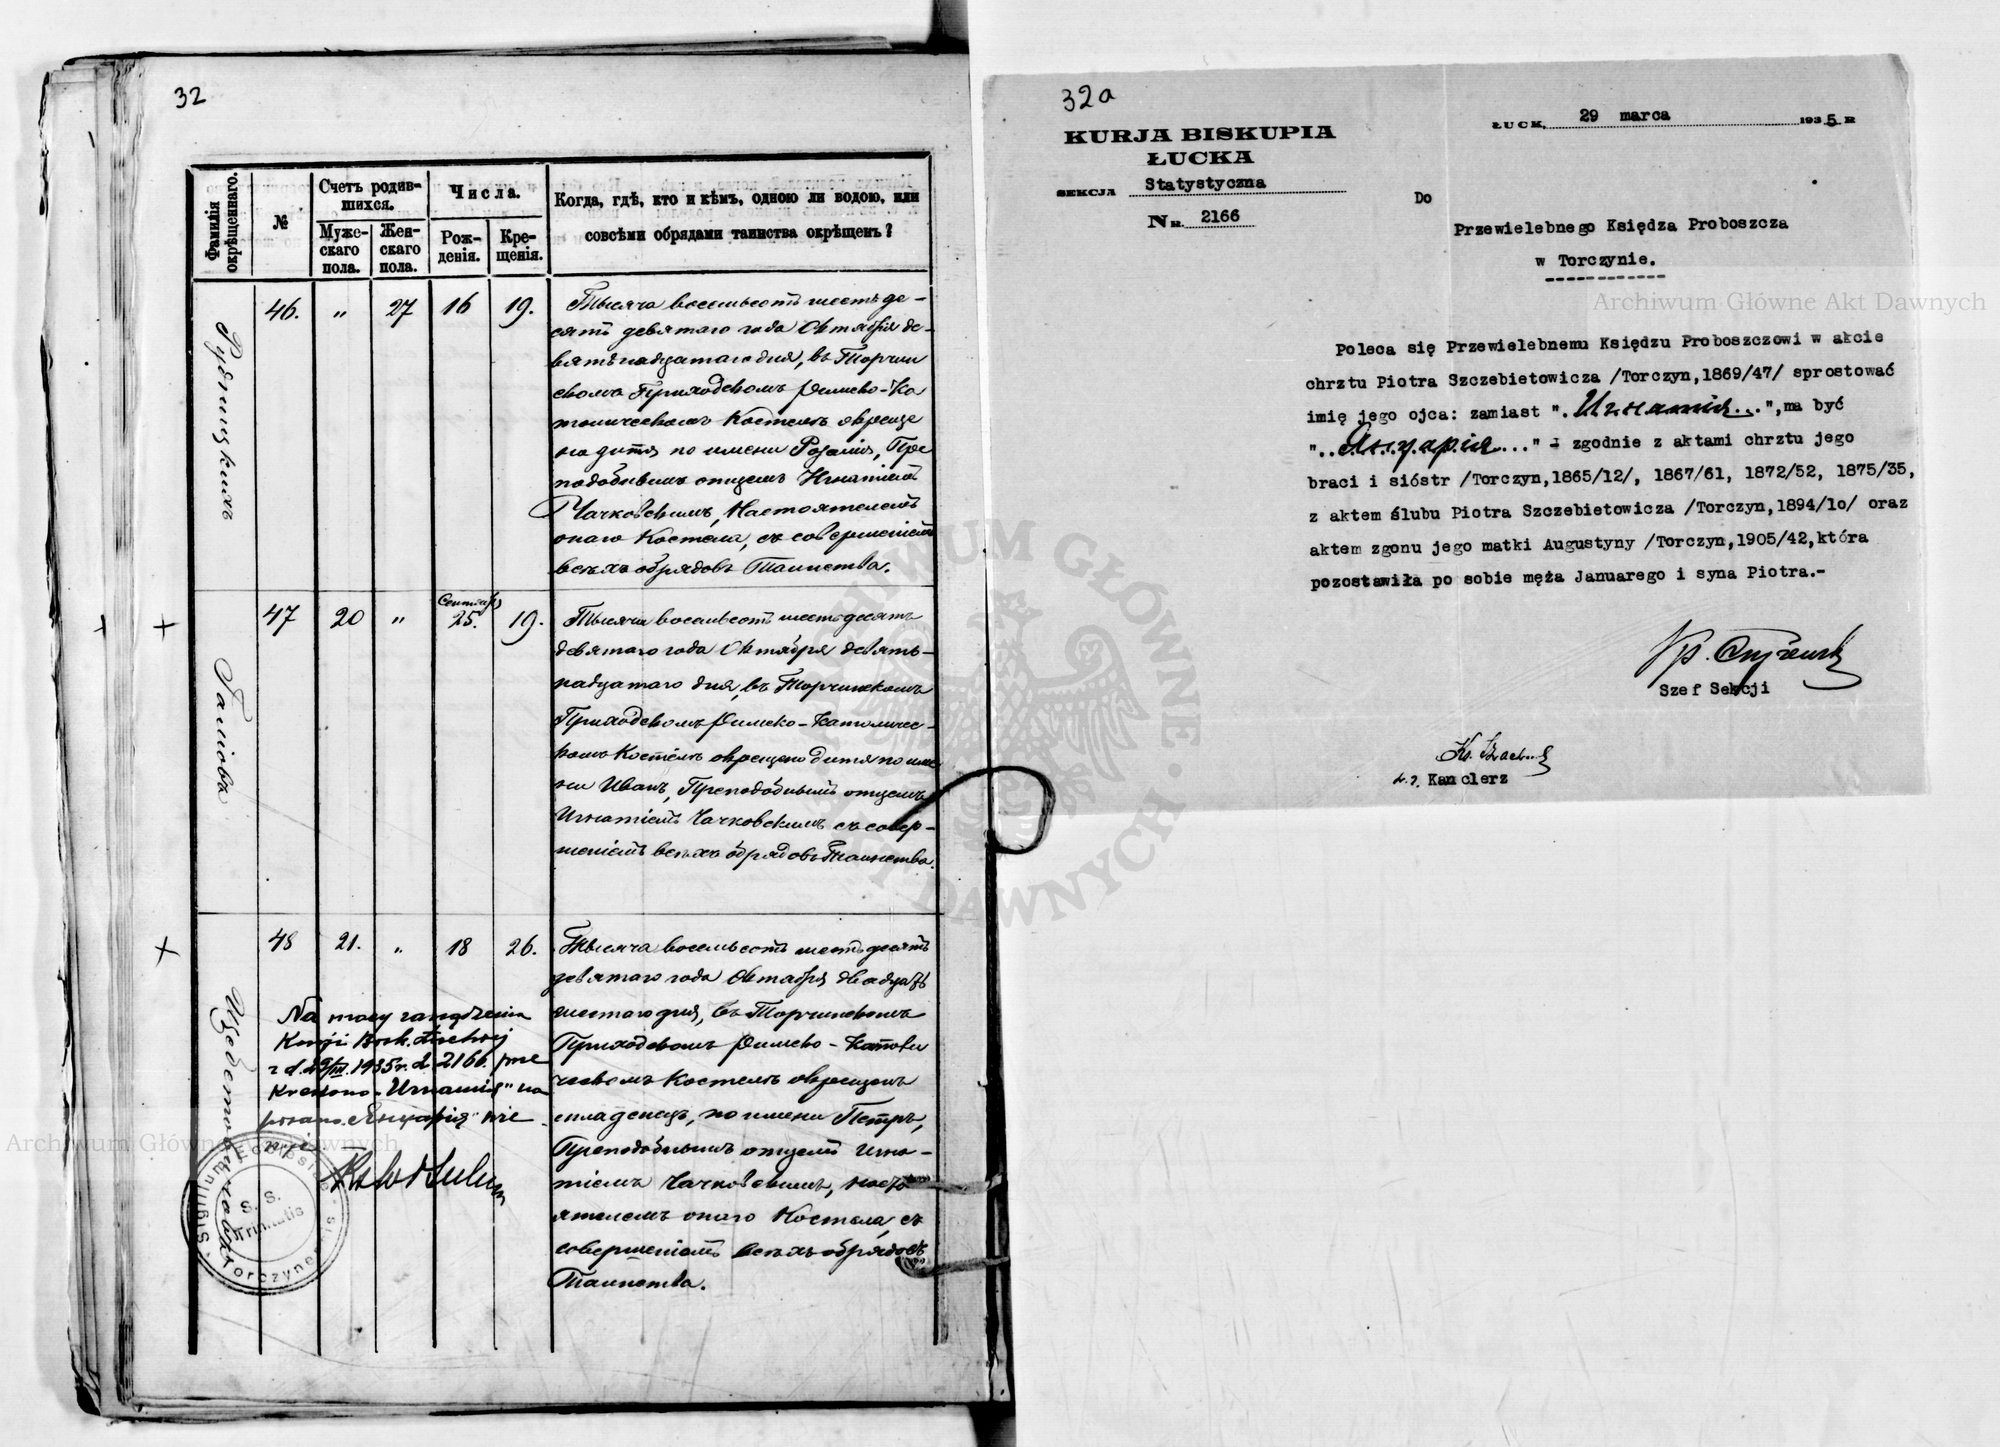 32
Фамилія окрѣщеннаго.
№
Счетъ родив-
шихся.
Муже-
скаго
пола.
Жен-
скаго
пола.
Числа.
Рож-
денія.
Кре-
щенія.
Когда, гдѣ, кто и кѣмъ, одною ли водою, или
совсѣми обрядами таинства окрѣщенъ?
46. " 27 16 19.
Тысяча восемьсотъ шестьде-
сятъ девятаго года Октября де-
вятьнадцатаго дня, въ Торчин
скомъ Приходскомъ Римско-Ка
толическомъ Костелѣ окреще
но дитя по имени Розалія, Пре
подобнымъ отцемъ Игнатіемъ
Чачковскимъ, Настоятелемъ
онаго Костела, съ совершеніемъ
всѣхъ обрядовъ Таинства.
47 20 " Сентября 25. 19.
Тысяча восемьсотъ шестьдесятъ
девятаго года Октября девять-
надцатаго дня, въ Торчинскомъ
Приходскомъ Римско-Католичес-
комъ Костелѣ окрещено дитя по име
ни Иванъ, Преподобнымъ отцемъ
Игнатіемъ Чачковскимъ съ совер-
шеніемъ всѣхъ обрядовъ Таинства.
48 21. " 18 26.
Тысяча восемьсотъ шестьдесятъ
девятаго года Октября двадцать
шестаго дня, въ Торчинскомъ
Приходскомъ Римско-Католи
ческомъ Костелѣ окрещенъ
младенецъ, по имени Петръ,
Преподобнымъ отцемъ Игна-
тіемъ Чачковскимъ, насто
ятелемъ онаго Костела, съ
совершеніемъ всѣхъ обрядовъ
Таинства.
Na mocy zarządzenia
Kurji Bisk. Łuckiej
z d. 29/III. 1935 r. L. 2166. prze
kreślono "
pisano "Януарія"
Sigillum Ecclesiae Torczynensis
S. S.
Trinitatis
32a
KURJA BISKUPIA
ŁUCKA
SEKCJA Statystyczna
Nr. 2166
ŁUCK, 29 marca 1935 R
Do
Przewielebnego Księdza Proboszcza
w Torczynie.
Poleca się Przewielebnemu Księdzu Proboszczowi w akcie
chrztu Piotra Szczebietowicza /Torczyn,1869/47/ sprostować
imię jego ojca: zamiast "..Игнатія...",ma być
"..Януарія..." - zgodnie z aktami chrztu jego
braci i sióstr /Torczyn,1865/12/, 1867/61, 1872/52, 1875/35,
z aktem ślubu Piotra Szczebietowicza /Torczyn,1894/10/ oraz
aktem zgonu jego matki Augustyny /Torczyn,1905/42,która
pozostawiła po sobie męża Januarego i syna Piotra.-
Szef Sekcji
Kanclerz
Archiwum Główne Akt Dawnych
Archiwum Główne Akt Dawnych
ARCHIWUM GŁÓWNE AKT DAWNYCH